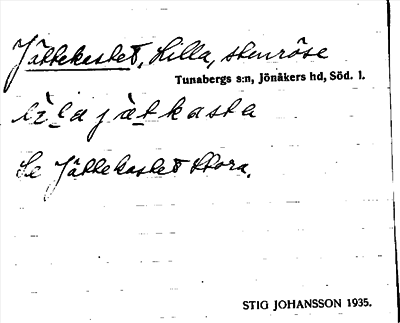 Jättekastet, Lilla, stenröse
Tunabergs s:n, Jönåkers hd, Söd. l.
lìla jèt kasta
Se Jättekastet Stora.
STIG JOHANSSON 1935.